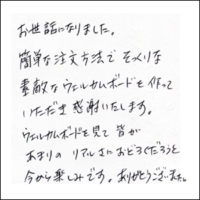 お世話になりました。
簡単な注文方法で そっくりな
素敵なウェルカムボードを作って
いただき感謝いたします。
ウェルカムボードを見て 皆が
あまりの リアルさにおどろくだろうと
今から楽しみです。ありがとうございました。